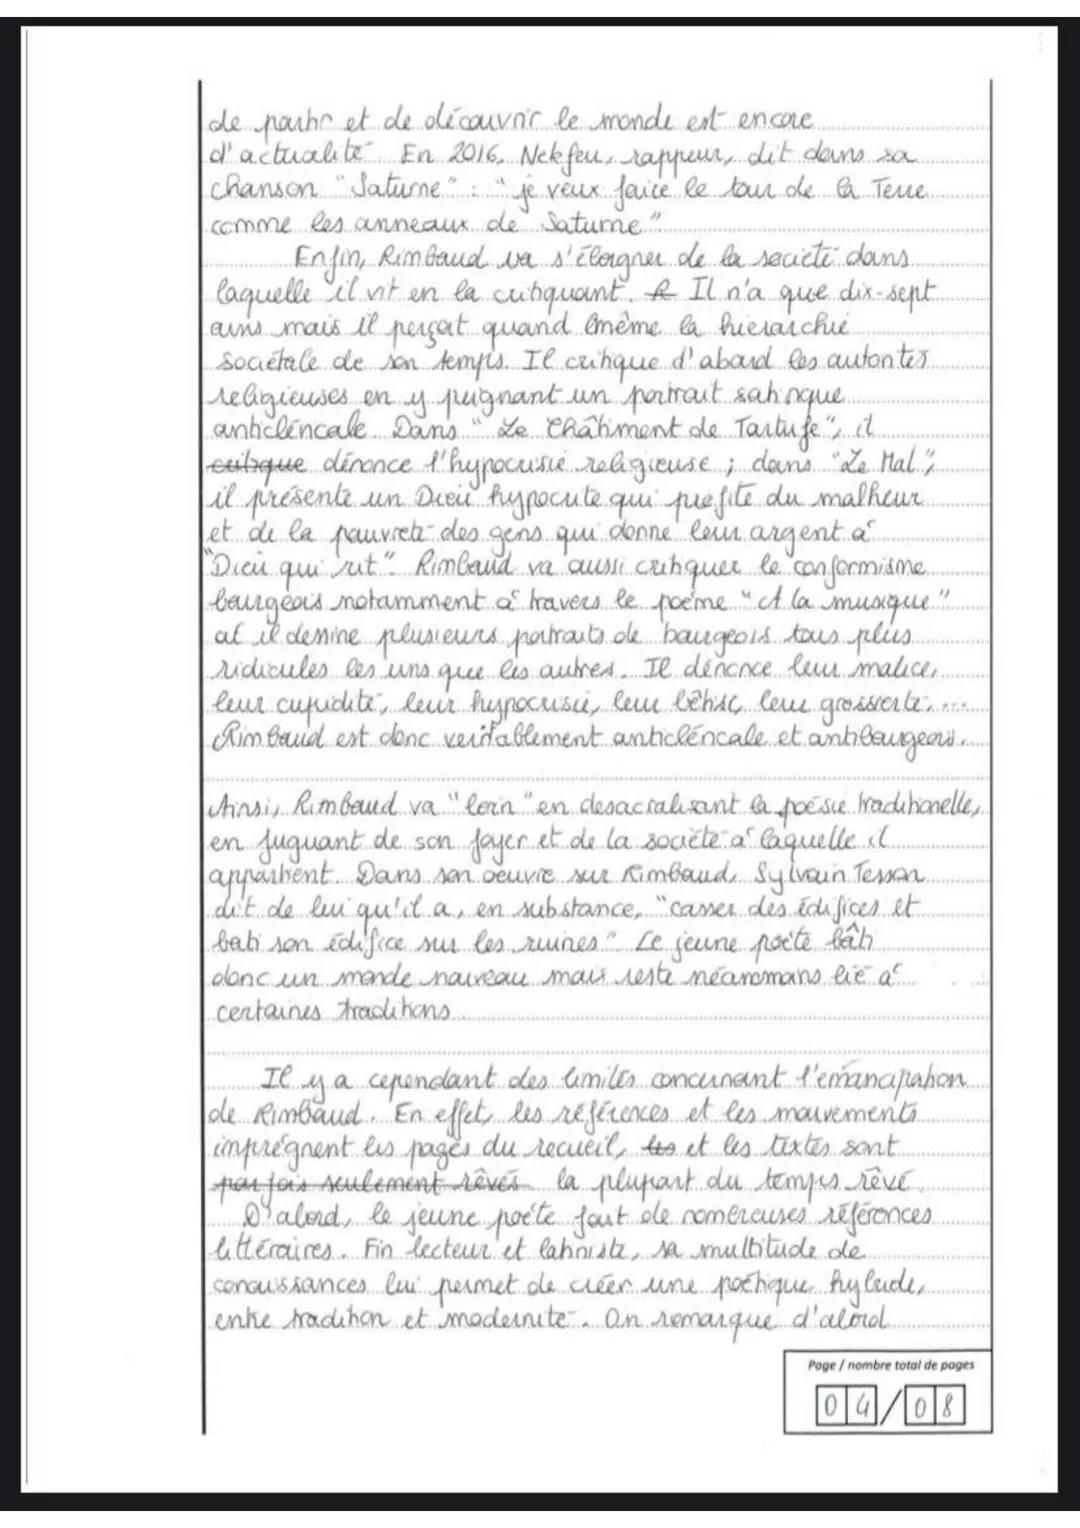 de partir et de découvrir le monde est encore
d'actualité. En 2016, Nekfeu, rappeur, dit dans sa
chanson "Saturne" : "je veux faire le tour de la Terre
comme les anneaux de Saturne".
Enfin, Rimbaud va s'éloigner de la société dans
laquelle il vit en la critiquant. R Il n'a que dix-sept
ans mais il perçoit quand même la hiérarchie
sociétale de son temps. Il critique d'abord les autorités
religieuses en y peignant un portrait satirique
anticléricale. Dans "Le Châtiment de Tartufe", il
critique dénonce l'hypocrisie religieuse ; dans "Le Mal",
il présente un Dieu hypocrite qui profite du malheur
et de la pauvreté des gens qui donne leur argent à
"Dieu qui rit". Rimbaud va aussi critiquer le conformisme
bourgeois notamment à travers le poème "A la musique"
où il dessine plusieurs portraits de bourgeois tous plus
ridicules les uns que les autres. Il dénonce leur malice,
leur cupidité, leur hypocrisie, leur bêtise, leur grossierté, ...
Rimbaud est donc véritablement anticléricale et antibourgeois.
Ainsi, Rimbaud va "loin" en desacralisant la poésie traditionelle,
en fuguant de son foyer et de la société à laquelle il
appartient. Dans son oeuvre sur Rimbaud, Sylvain Tesson
dit de lui qu'il a, en substance, "casser des édifices et
bati son édifice sur les ruines". Le jeune poète bâti
donc un monde nouveau mais reste néanmoins lié à
certaines traditions.
Il y a cependant des limites concernant l'émancipation
de Rimbaud. En effet, les références et les mouvements
imprégnent les pages du recueil, les et les textes sont
parfois seulement rêvés la plupart du temps rêvé.
D'abord, le jeune poète fait de nombreuses références
littéraires. Fin lecteur et latiniste, sa multitude de
conaissances lui permet de créer une poétique hybride,
entre tradition et modernité. On remarque d'abord
Page / nombre total de pages
04/08